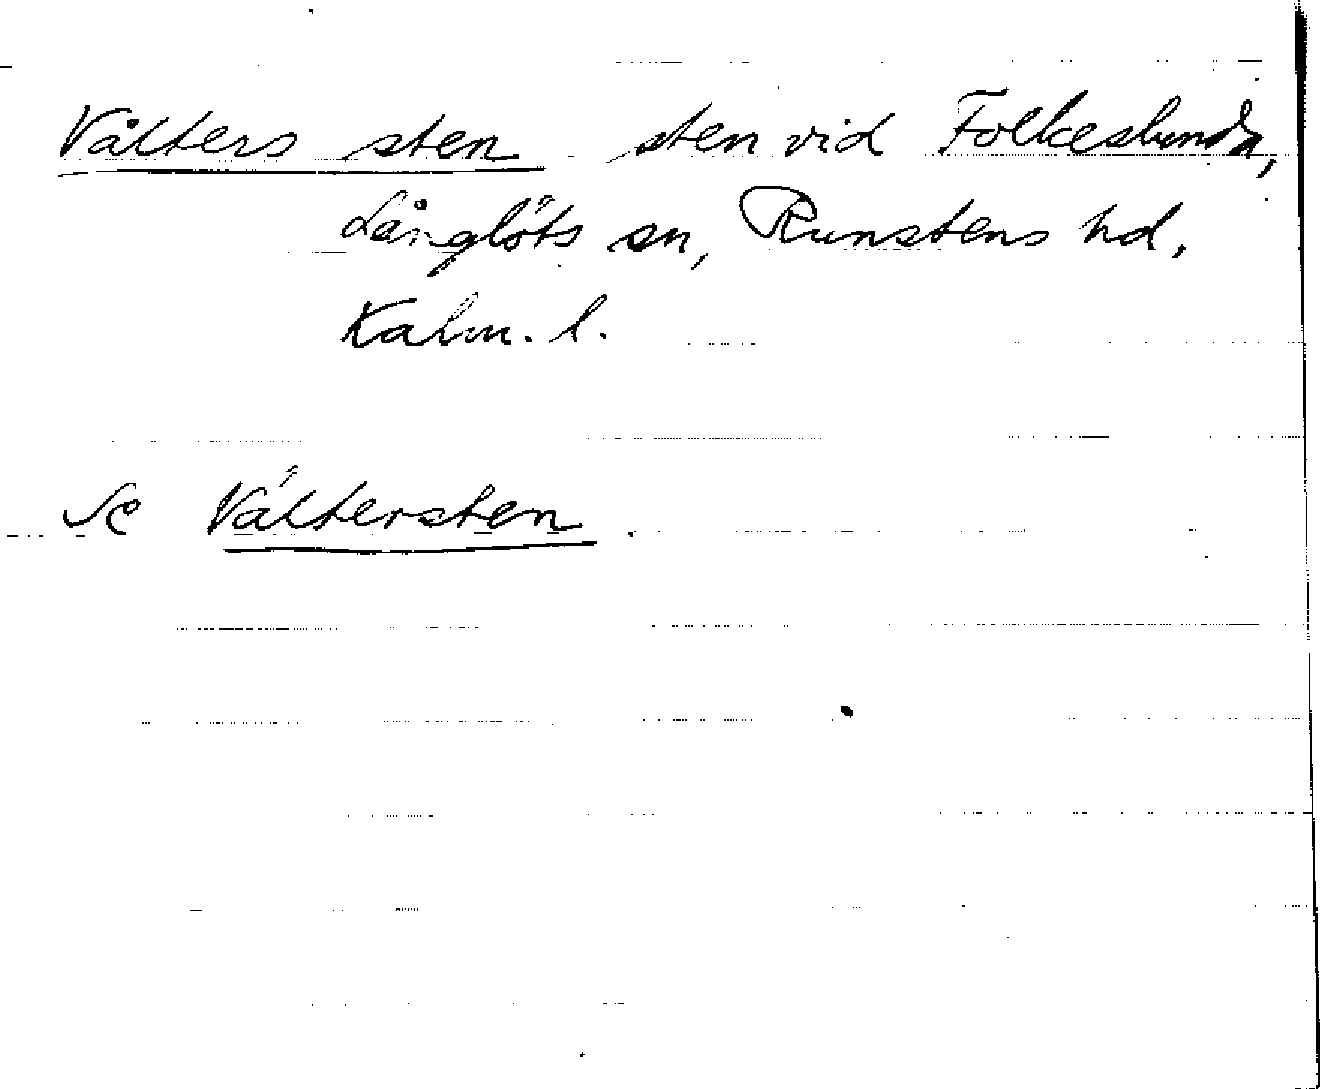 Vålters sten sten vid Folkeslunda,
Långlöts sn, Runstens hd,
Kalm. l.
Se Vältersten